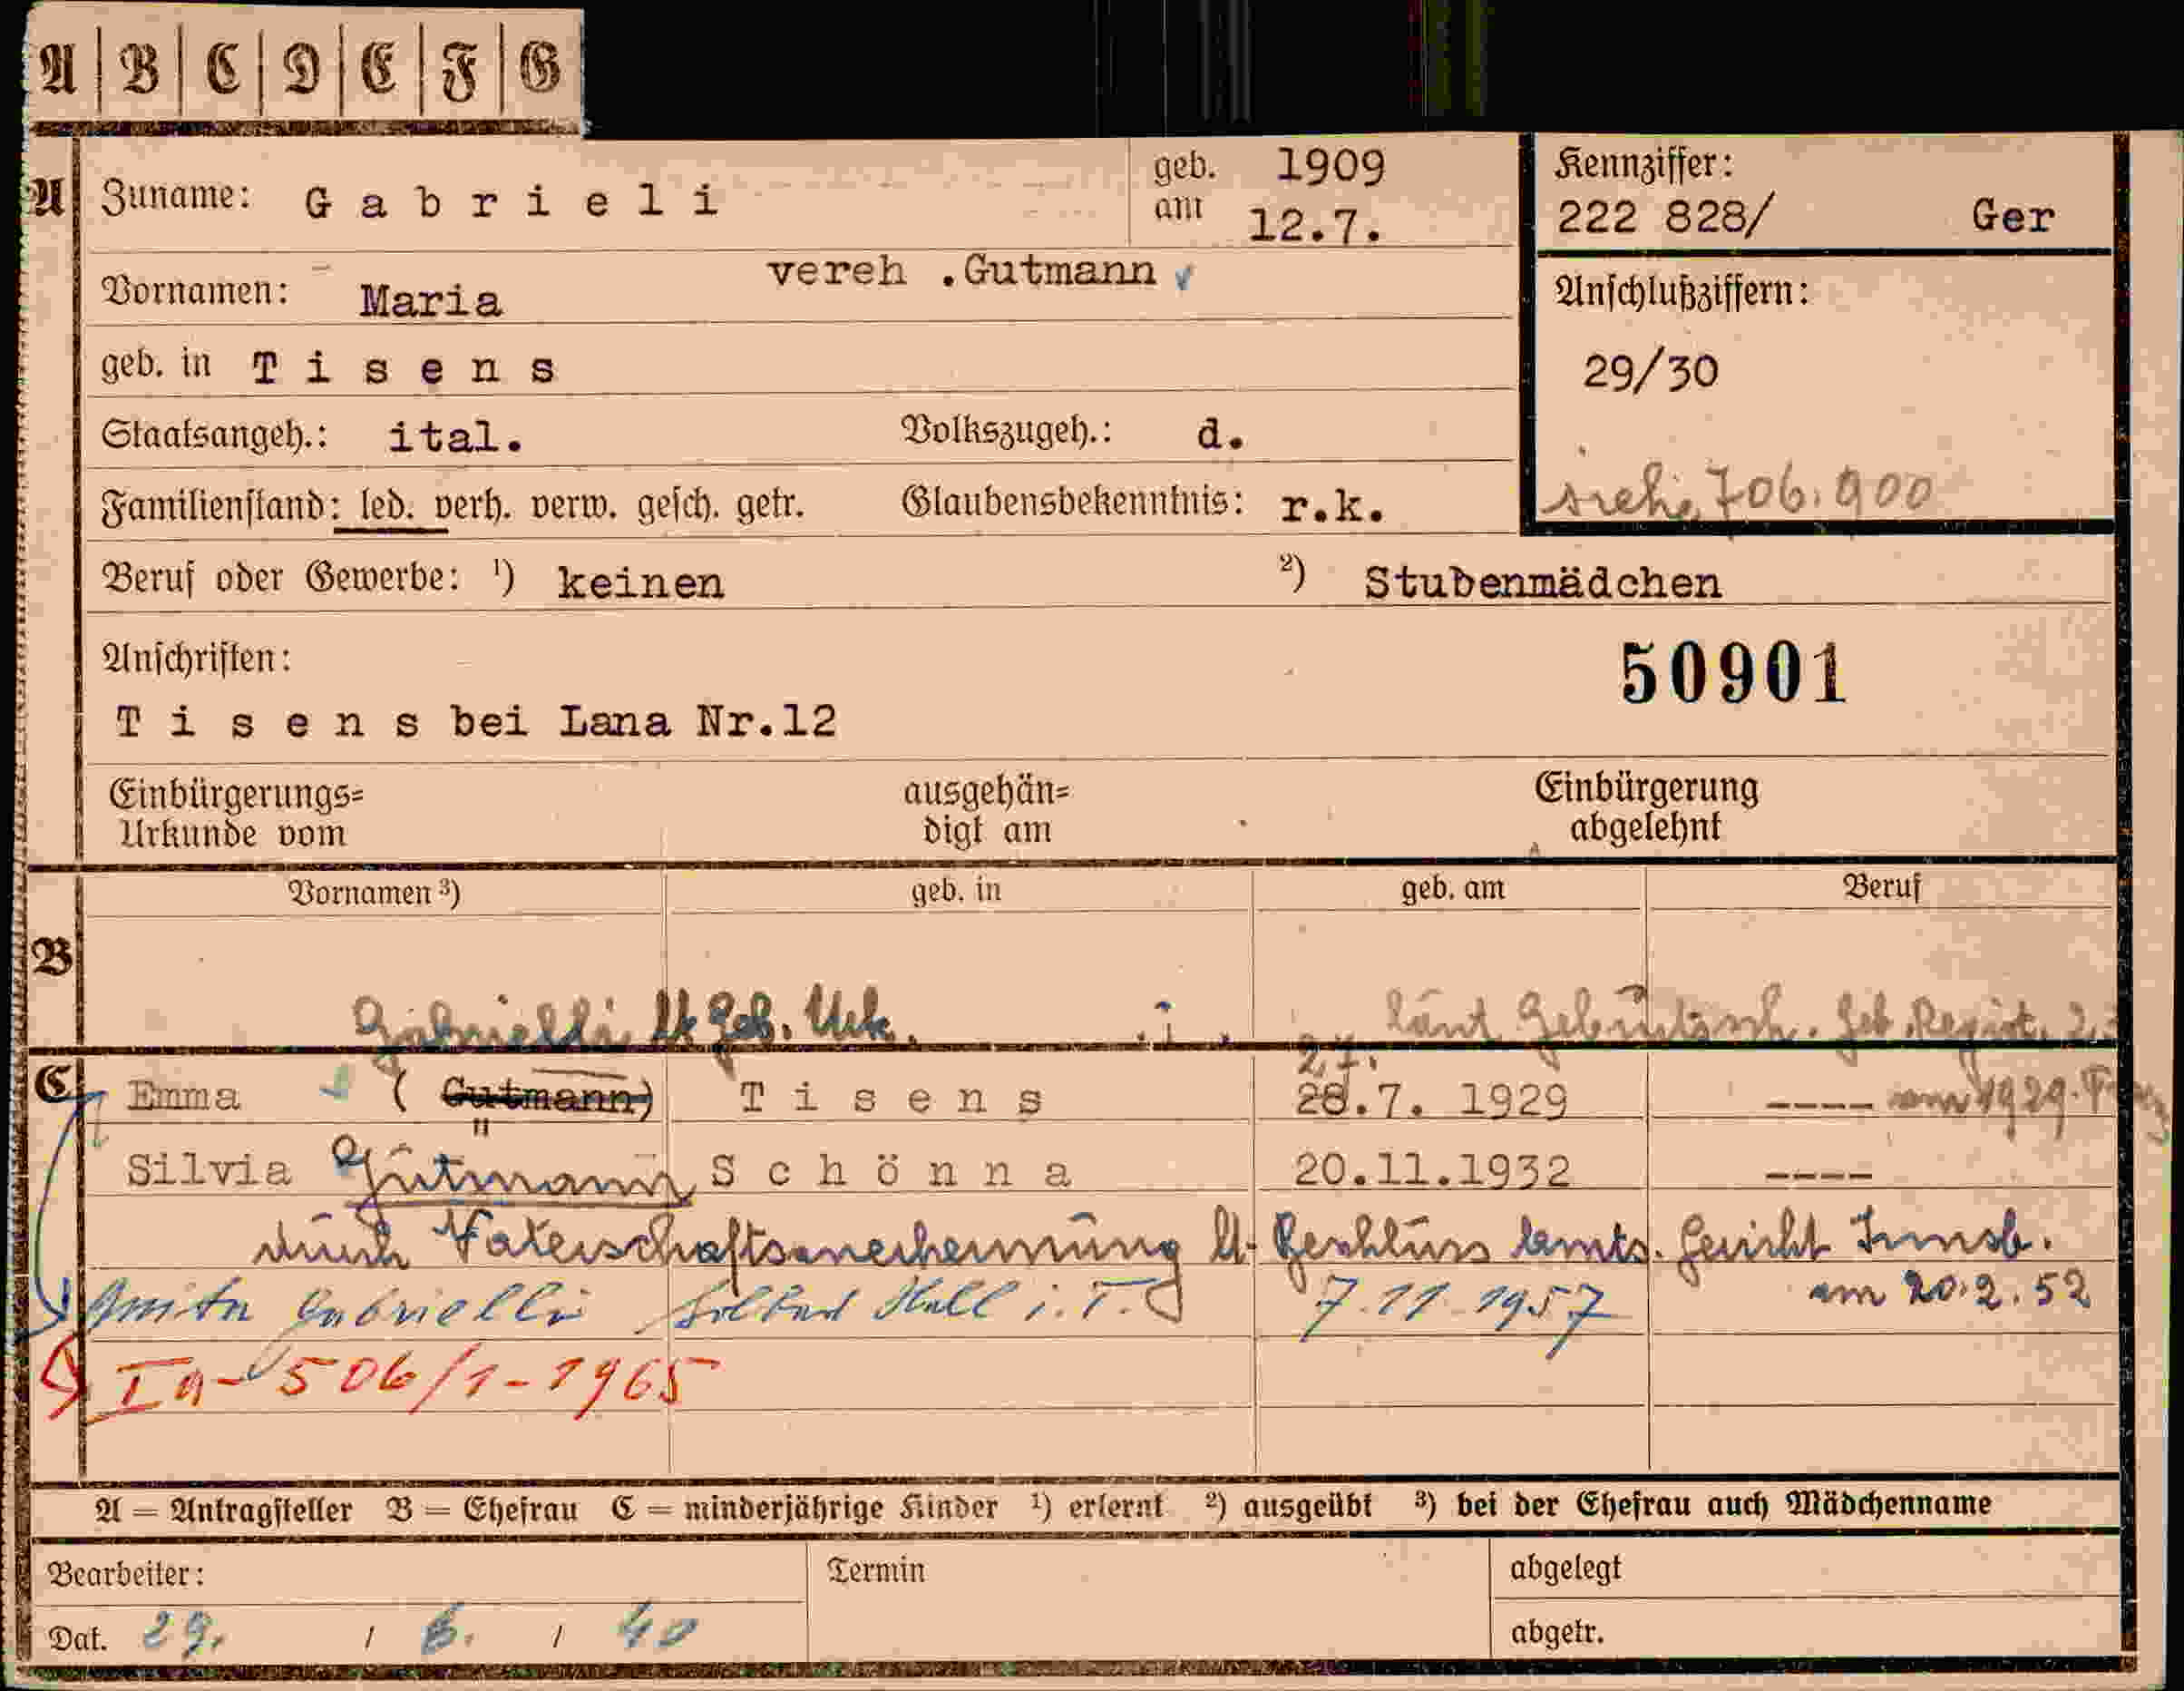 A | B | C | D | E | F | G
A Zuname: G a b r i e l i geb. am 1909 12.7.
Kennziffer:
222 828/ Ger
vereh .Gutmann
Vornamen: Maria
Anschlußziffern:
29/30
siehe 706.900
geb. in T i s e n s
Staatsangeh.: ital. Volkszugeh.: d.
Familienstand: led. verh. verw. gesch. getr. Glaubensbekenntnis: r.k.
Beruf oder Gewerbe: ¹) keinen ²) Stubenmädchen
Anschriften:
50901
T i s e n s bei Lana Nr.12
Einbürgerungs= ausgehän= Einbürgerung
Urkunde vom digt am abgelehnt
Vornamen ³) geb. in geb. am Beruf
B
Gabrielli lt Geb. Urk. laut Geb. Regist.
27.
C Emma ( Gutmann) T i s e n s 28.7. 1929 ---- 1929
"
Silvia Gutmann S c h ö n n a 20.11.1932 ----
durch Vaterschaftsanerkennung lt. Beschluss Gericht Innsb.
am 20.2.52
Gabrielli Solbad Hall i. T. 7.11.1957
Ia-506/1-1965
A = Antragsteller B = Ehefrau C = minderjährige Kinder ¹) erlernt ²) ausgeübt ³) bei der Ehefrau auch Mädchenname
Bearbeiter: Termin abgelegt
Dat. 29. / 6. / 40 abgetr.